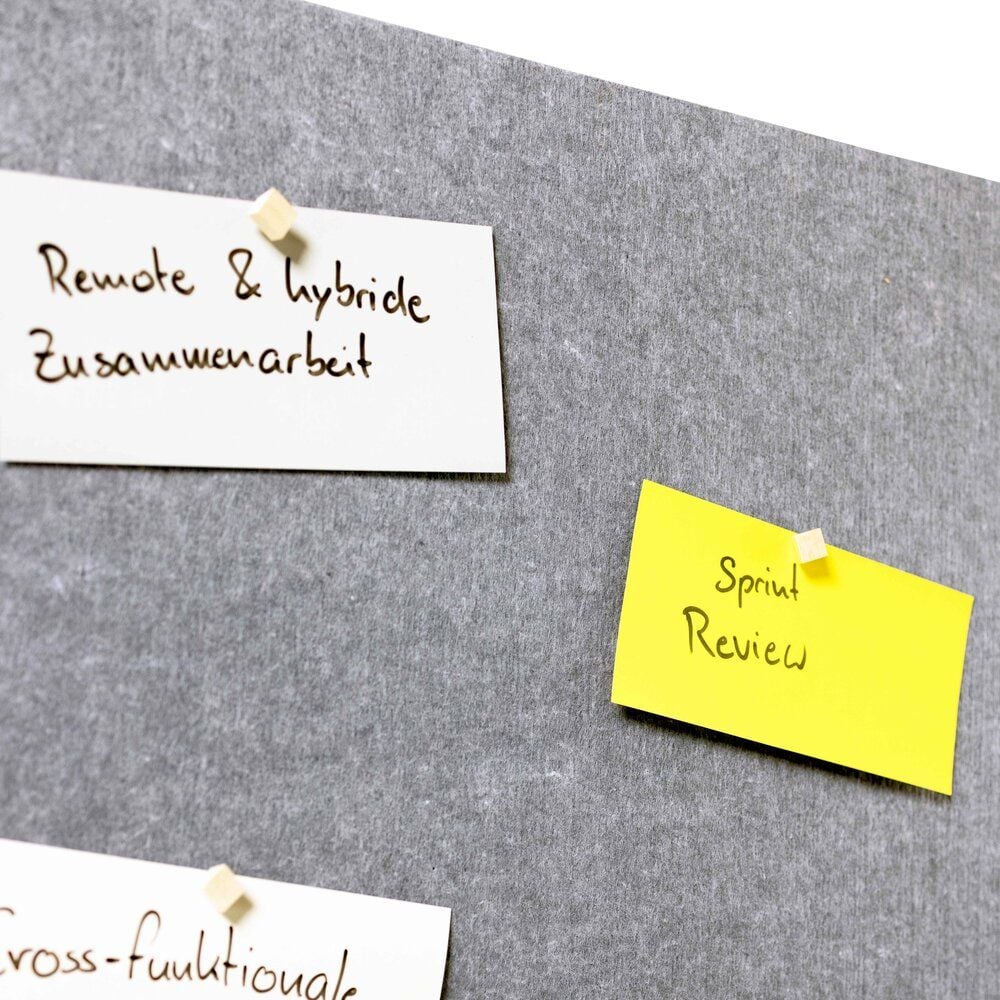 Remote & hybride
Zusammenarbeit
Sprint
Review
Cross-funktionale